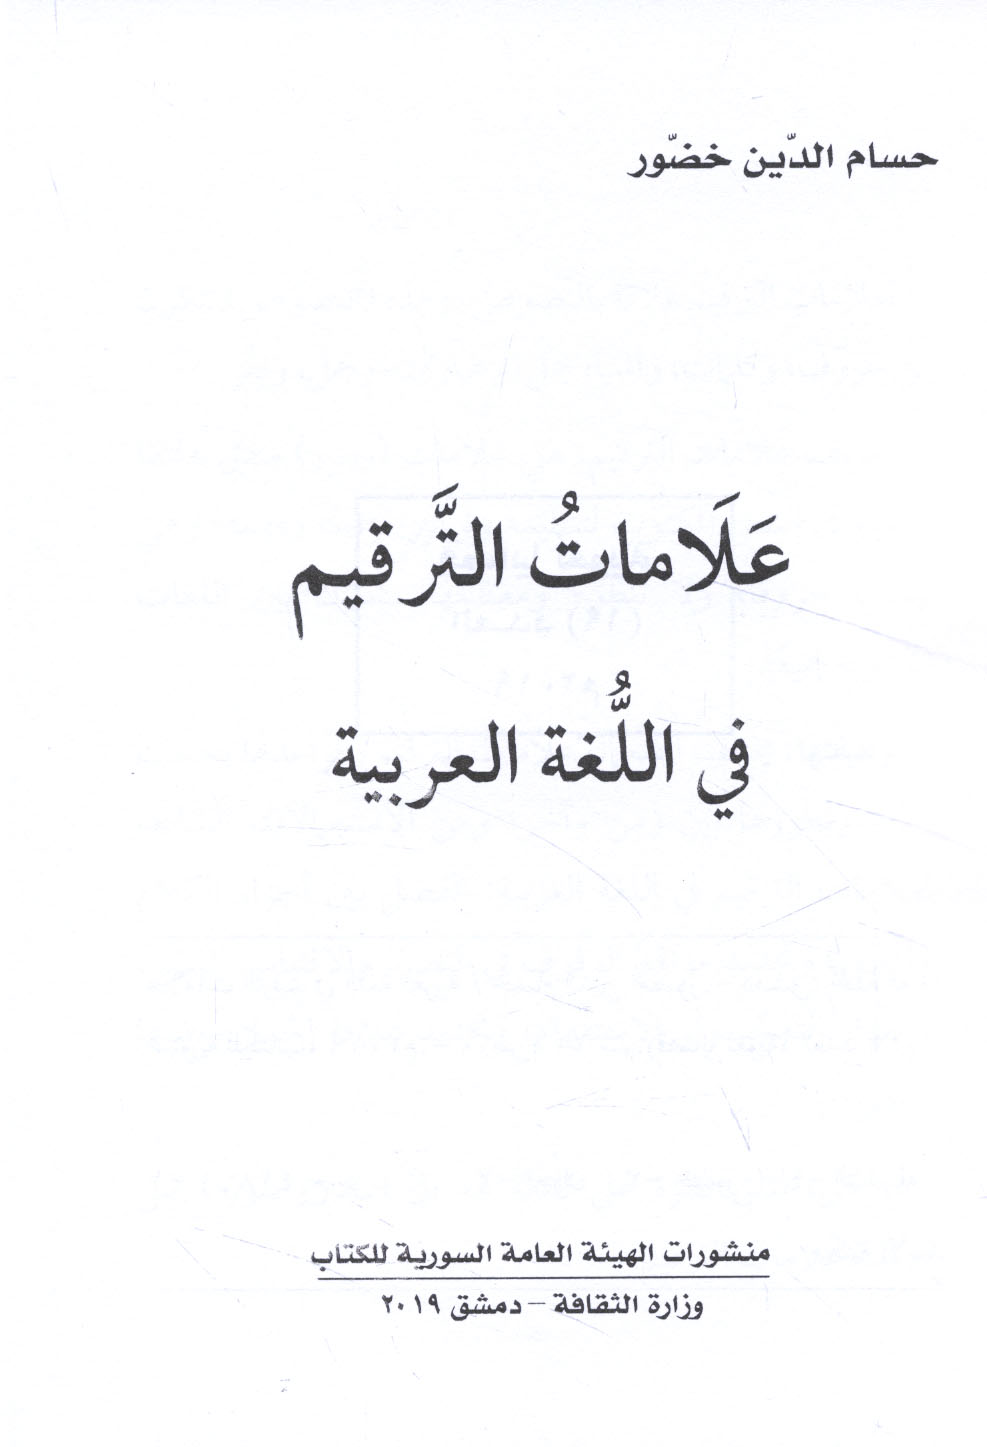 حسام الدّين خضّور
عَلَاماتُ التَّرقيم
في اللُّغة العربية
منشورات الهيئة العامة السورية للكتاب
وزارة الثقافة – دمشق ٢٠١٩